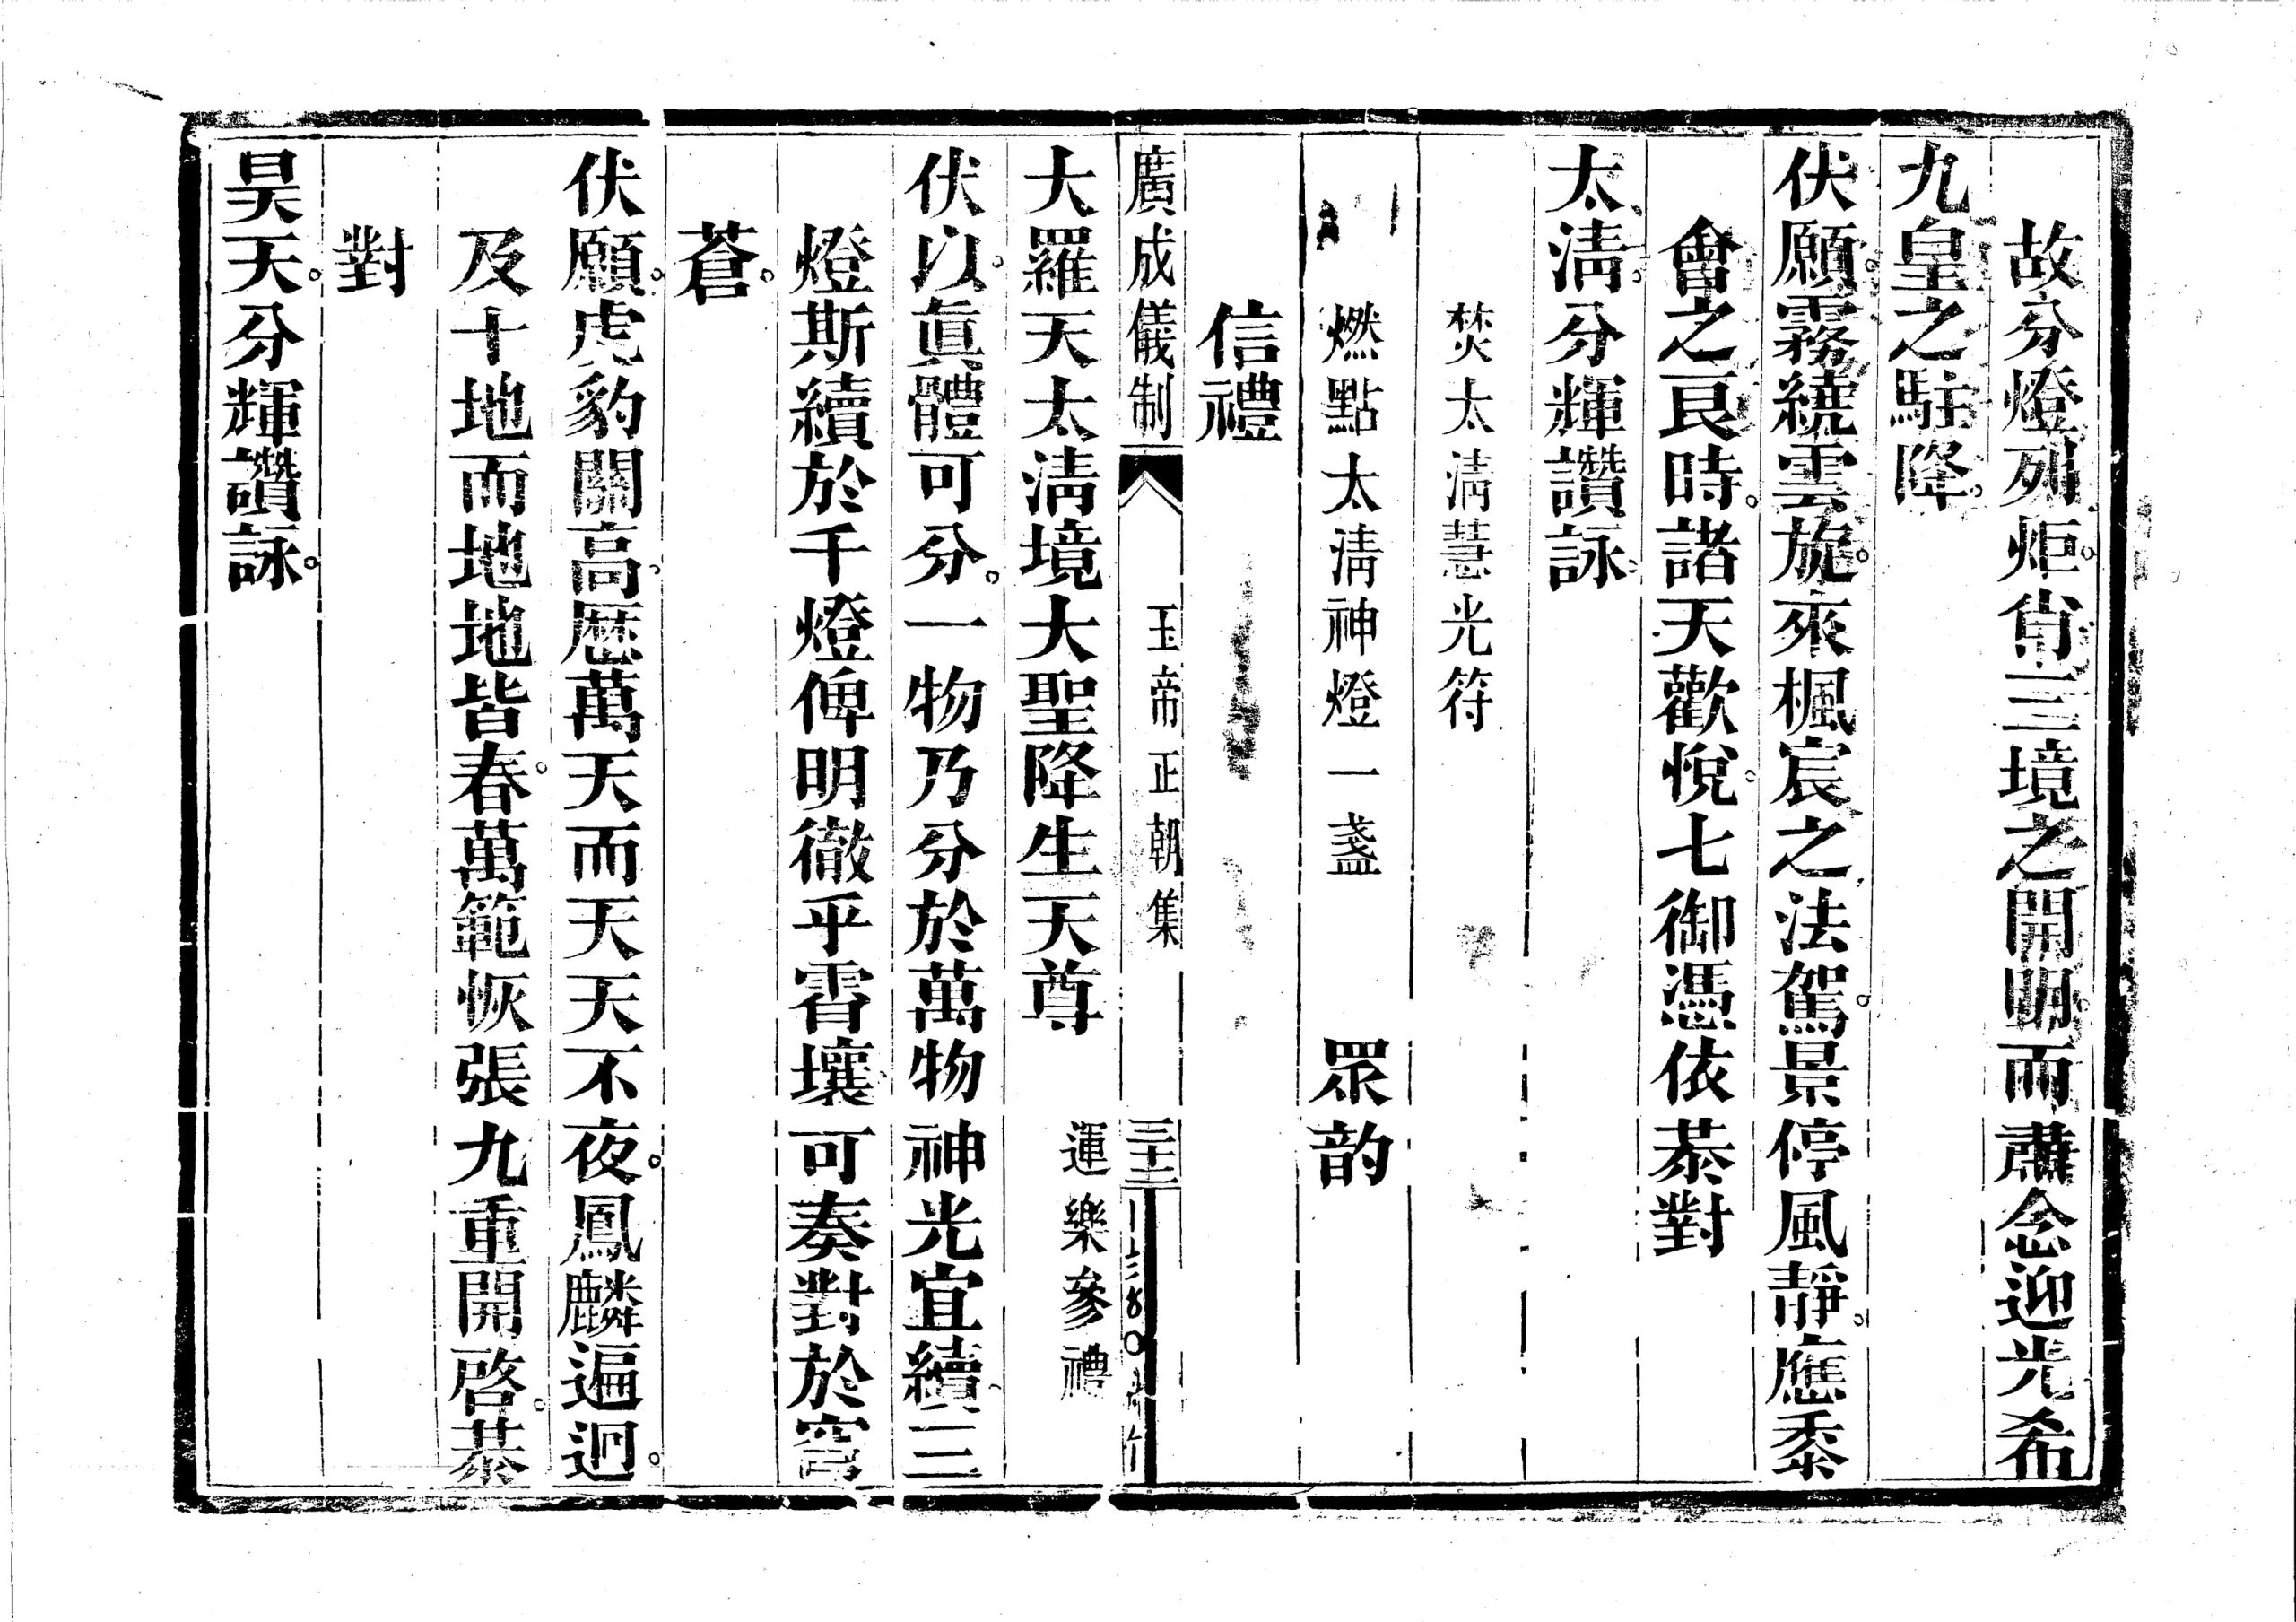 故分燈列炬肯三境之開明而肅念迎光希
九皇之駐降
伏願霧繞雲旋來楓宸之法駕景停風靜應黍
會之良時諸天歡悅七御憑依恭對
太淸分輝讚詠
焚太淸慧光符
燃點太淸神燈一盞　眾韵
信禮
廣成儀制　玉帝正朝集　三十三
大羅天太淸境大聖降生天尊　運樂參禮
伏以眞體可分一物乃分於萬物神光宜續三
燈斯續於千燈俾明徹乎霄壤可奏對於穹
蒼
伏願虎豹關高歷萬天而天天不夜鳳麟遍迥
及十地而地地皆春萬範恢張九重開啓恭
對
昊天分輝讚詠